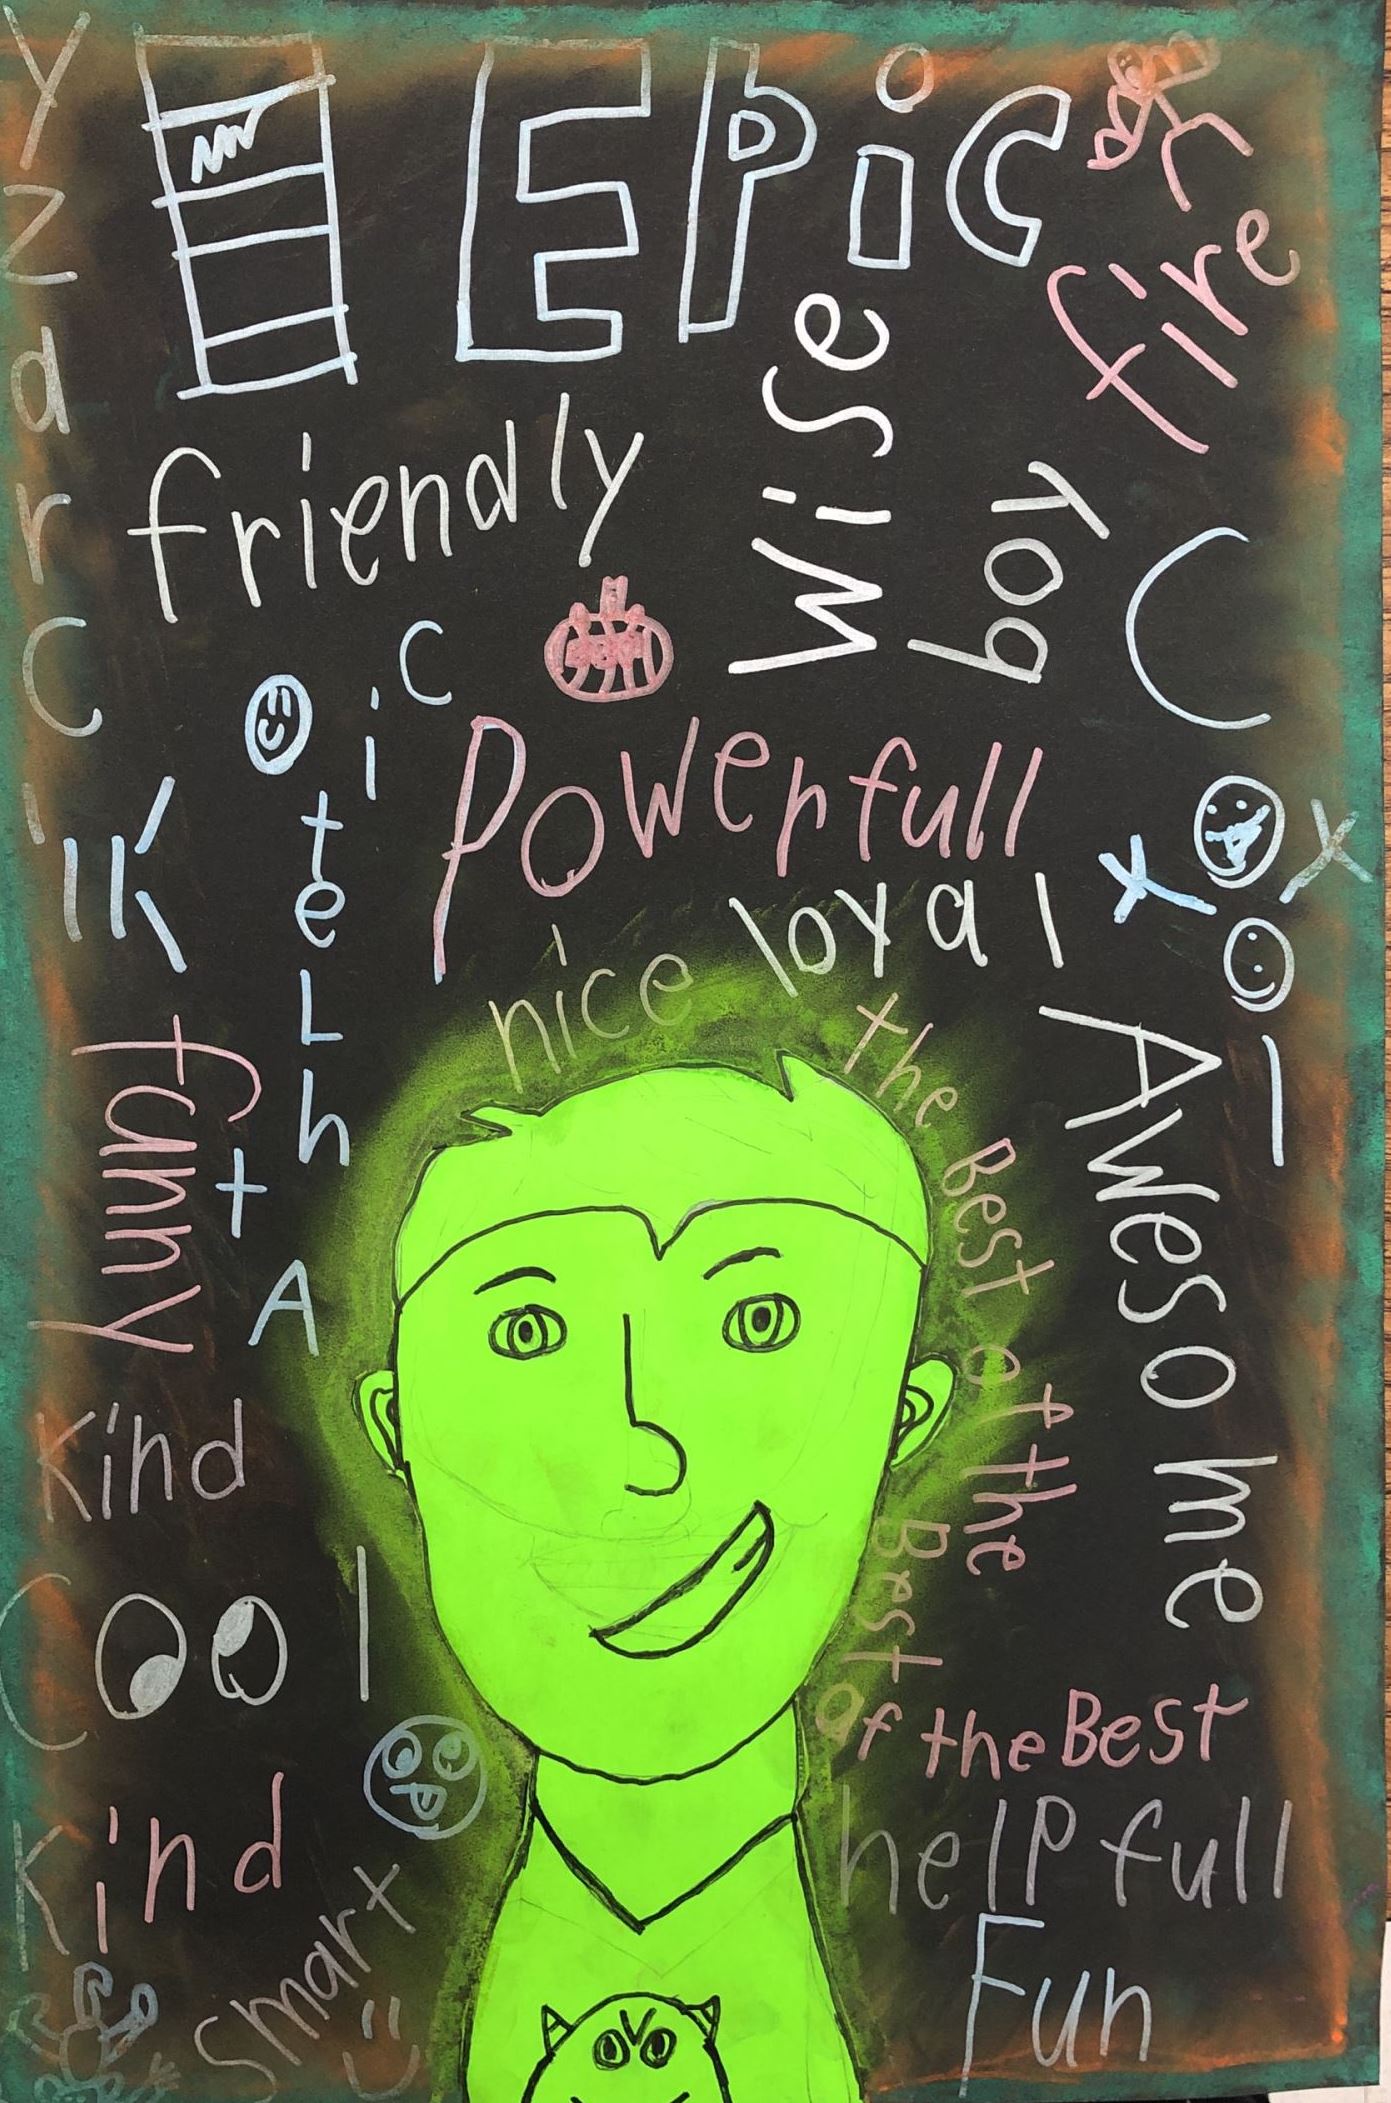 EPiC
fire
CraZY
friendly
Wise
boy
Powerfull
AthLetic
Cool
nice
loyal
funny
the Best of the Best of the Best
AWesome
Kind
Cool
Kind
helpfull
Smart
Fun